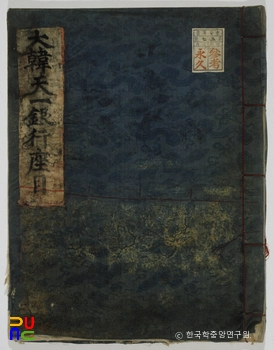 大韓天一銀行座目
永久
PUAC
ⓒ 한국학중앙연구원